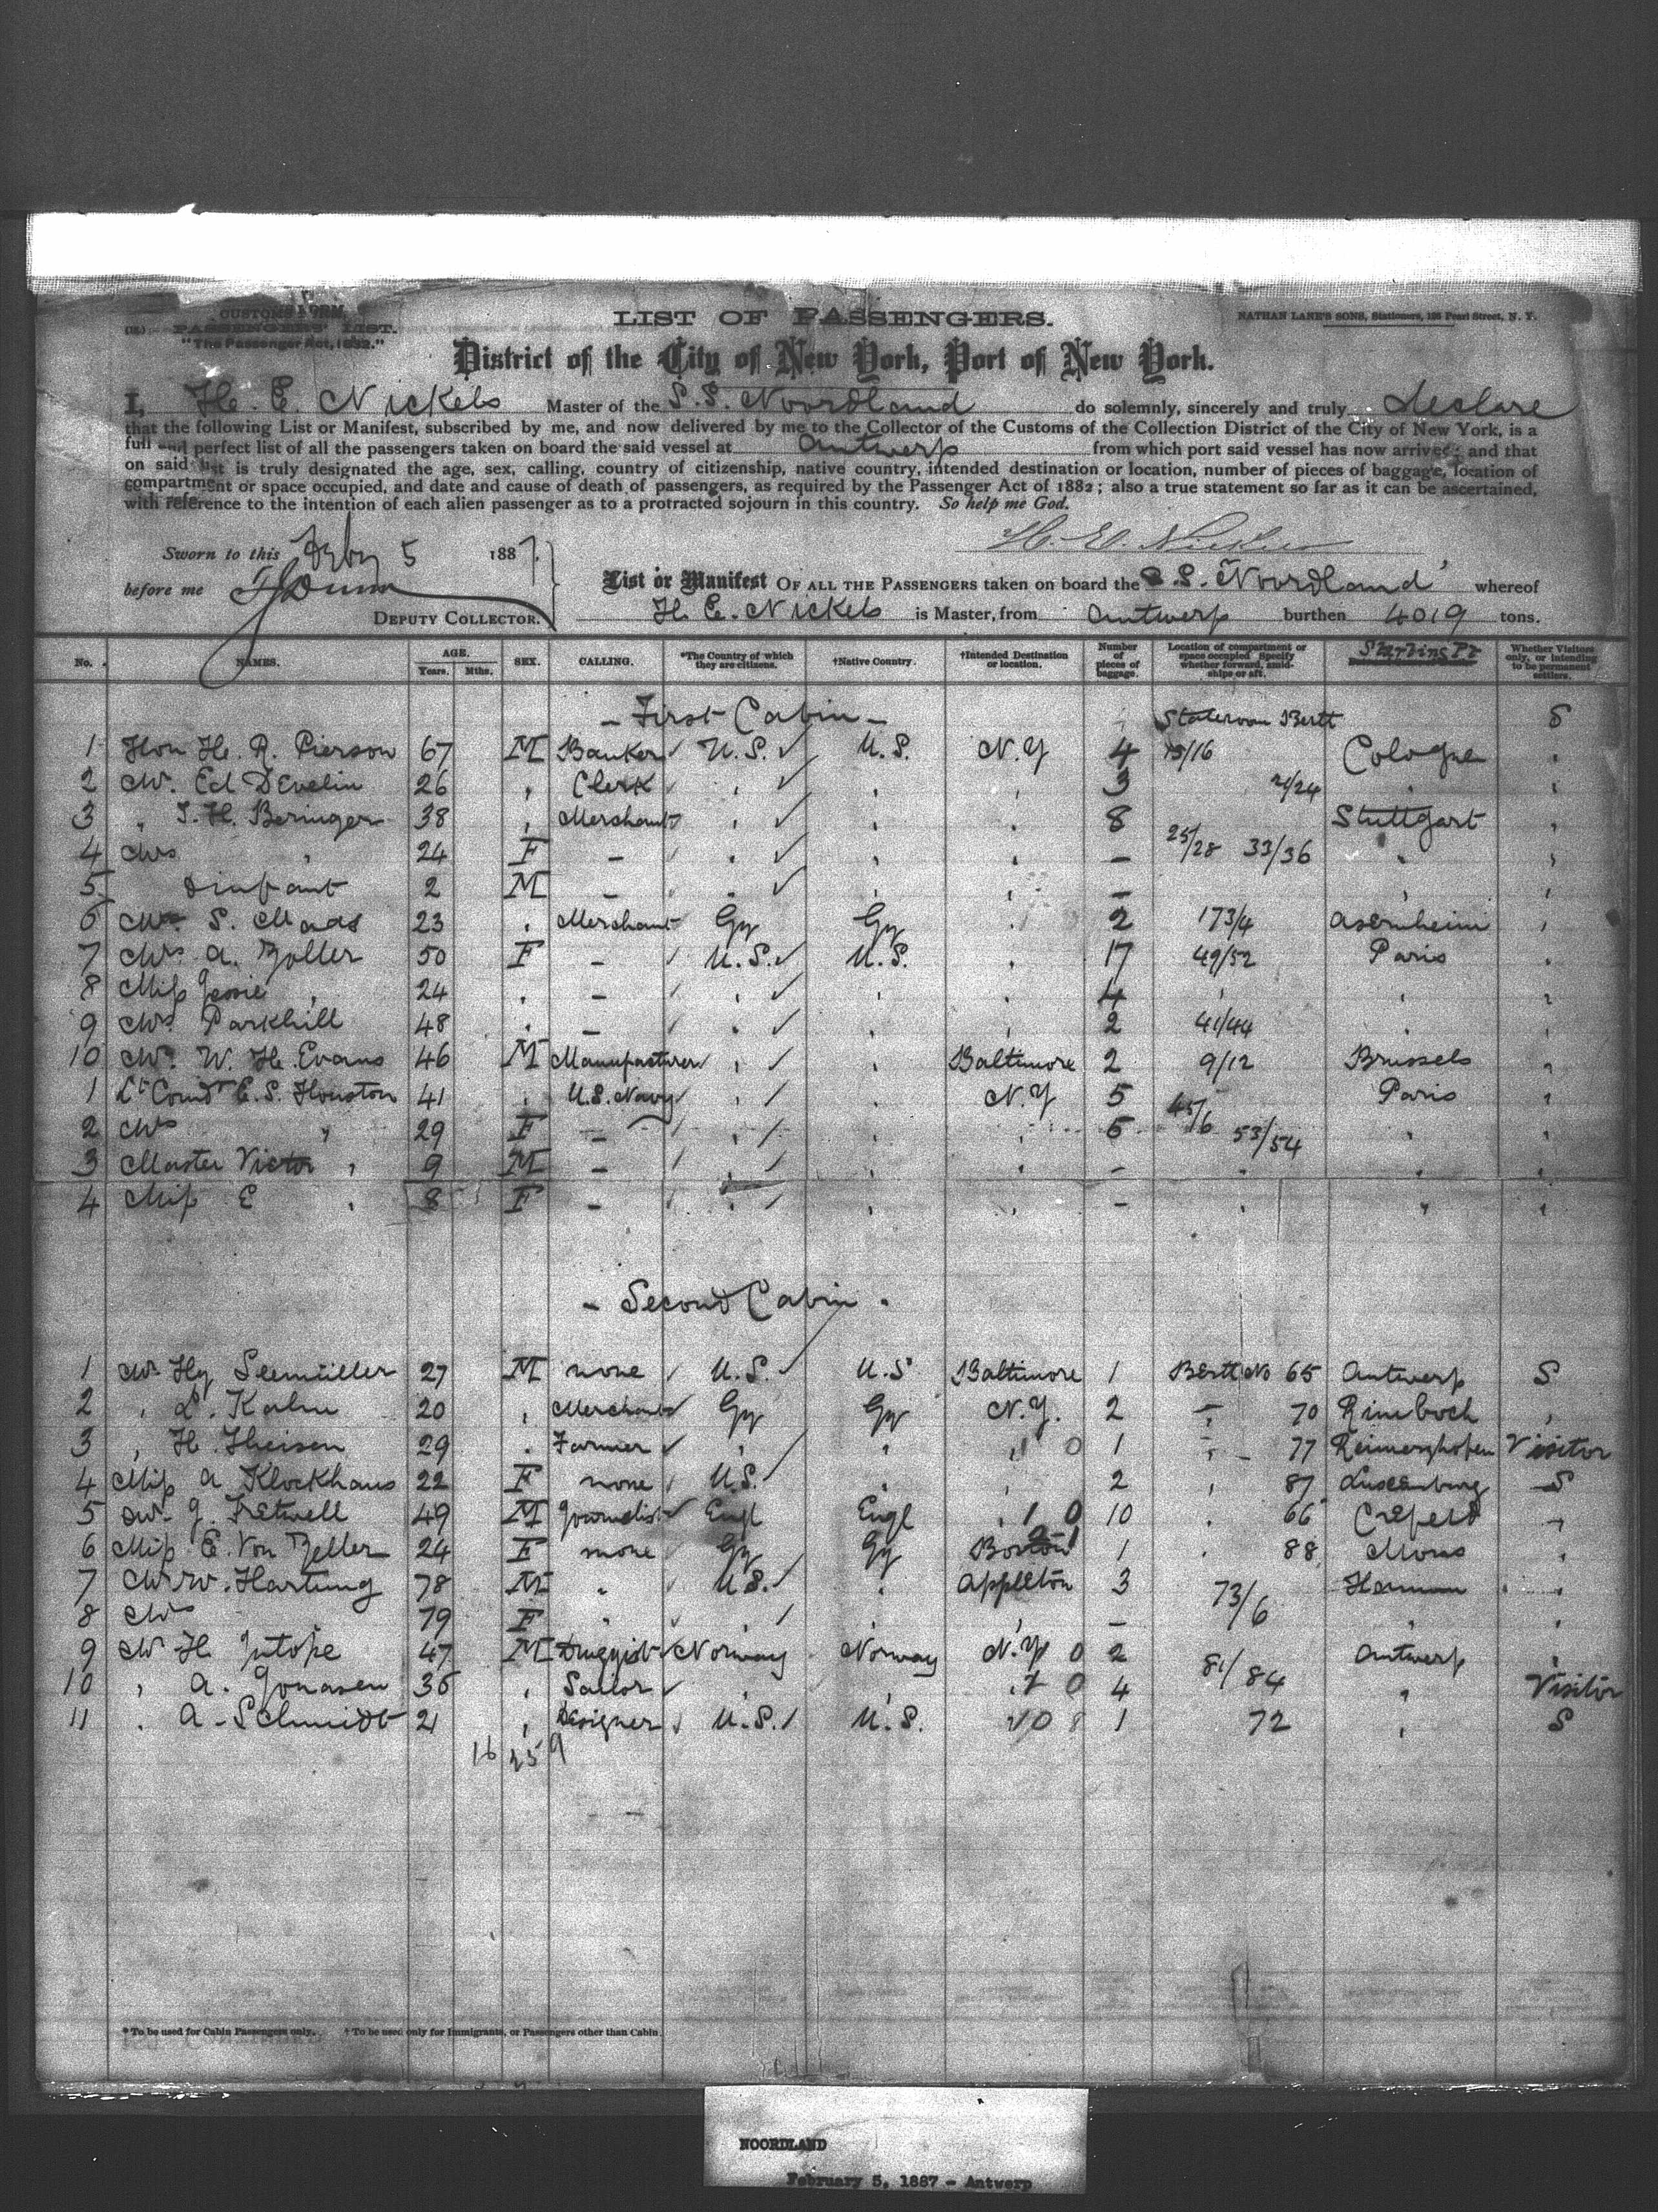 CUSTOMS FORM,
PASSENGERS' LIST.
"The Passenger Act, 1882."
LIST OF PASSENGERS.
NATHAN LANE'S SONS, Stationers, 138 Pearl Street, N. Y.
District of the City of New York, Port of New York.
I, H. E. Nickels Master of the S.S. Noordland do solemnly, sincerely and truly declare
that the following List or Manifest, subscribed by me, and now delivered by me to the Collector of the Customs of the Collection District of the City of New York, is a
full and perfect list of all the passengers taken on board the said vessel at Antwerp from which port said vessel has now arrived; and that
on said list is truly designated the age, sex, calling, country of citizenship, native country, intended destination or location, number of pieces of baggage, location of
compartment or space occupied, and date and cause of death of passengers, as required by the Passenger Act of 1882; also a true statement so far as it can be ascertained,
with reference to the intention of each alien passenger as to a protracted sojourn in this country. So help me God.
H. E. Nickels
Sworn to this Feby 5 1887.
before me
DEPUTY COLLECTOR.
List or Manifest OF ALL THE PASSENGERS taken on board the S.S. Noordland whereof
H. E. Nickels is Master, from Antwerp burthen 4019 tons.
No. NAMES. AGE. Years. Mths. SEX. CALLING. *The Country of which they are citizens. †Native Country. †Intended Destination or location. Number of pieces of baggage. Location of compartment or space occupied. Specify whether forward, amidships or aft. Starting Pt Whether Visitors only, or intending to be permanent settlers.
- First Cabin - Stateroom Berth S
1 Hon H. R. Pierson 67 M Banker U.S. U.S. N.Y 4 15/16 Cologne "
2 Mr. Ed DEvelin 26 " Clerk " " " 3 21/24 " "
3 " S. H. Beringer 38 " Merchant " " " 8 Stuttgart "
4 Mrs " 24 F - " " " - 25/28 33/36 " "
5 Infant 2 M - " " " - " "
6 Mr. S. Maas 23 " Merchant Gy Gy " 2 173/4 Asernheim "
7 Mrs A. Zoller 50 F - U.S. U.S. " 17 49/52 Paris "
8 Miss Jessie " 24 " - " " " 4 " " "
9 Mrs Parkhill 48 " - " " " 2 41/44 " "
10 Mr. W. H. Evans 46 M Manufacturer " " Baltimore 2 9/12 Brussels "
1 Lt Comdr E. S. Houston 41 " U.S. Navy " " N.Y 5 Paris "
2 Mrs " 29 F - " " " 5 45/6 53/54 " "
3 Master Victor " 9 M - " " " - " " "
4 Miss E " 8 F - " " " - " " "
- Second Cabin -
1 Mr Hy Seemüller 27 M none U.S. U.S Baltimore 1 Berth No 65 Antwerp S
2 " L. Kahn 20 " Merchant Gy Gy N.Y. 2 " 70 Rimboch "
3 " H. Theisen 29 " Farmer " " " 0 1 " 77 Reimerzhofen Visitor
4 Miss A Klockhaus 22 F none U.S. " " 2 " 87 Luxemburg S
5 Mr. J. Fretwell 49 M Journalist Engl Engl " 1 0 10 " 66 Crefeld "
6 Miss E. Von Zeller 24 F none Gy Gy Boston 1 " 88 Mons "
7 Mr W. Hartung 78 M " U.S. " Appleton 3 "
8 Mrs 79 F " " " " - 73/6 " "
9 Mr H. 47 M Druggist Norway Norway N.Y 0 2 Antwerp "
10 " A. Jonasen 36 " Sailor " " " 0 4 81/84 " Visitor
11 " A. Schmidt 21 " Designer U.S. U.S. 1 72 " S
16 25 9
*To be used for Cabin Passengers only. †To be used only for Immigrants, or Passengers other than Cabin.
NOORDLAND
February 5, 1887 - Antwerp